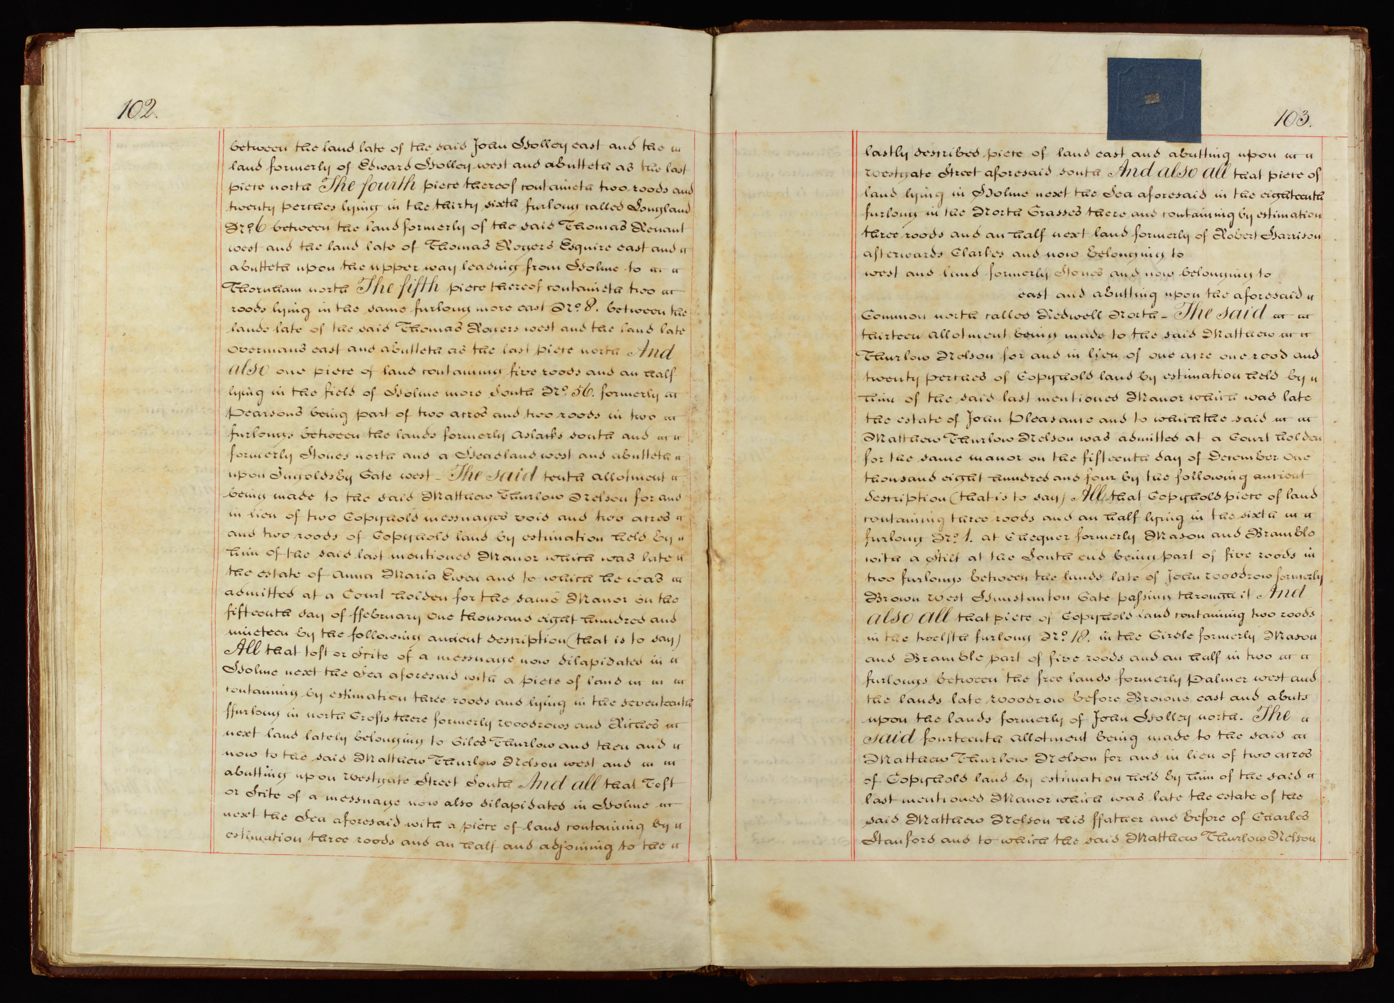 102.
between the land late of the said John Holley east and the
land formerly of Edward Holley west and abutteth as the last
piece north The fourth piece thereof containeth two roods and
twenty perches lying in the thirty sixth furlong called Longland
No. 6 between the land formerly of the said Thomas Renaut
west and the land late of Thomas Rogers Esquire east and
abutteth upon the upper way leading from Holme to
Thornham north The fifth piece thereof containeth two
roods lying in the same furlong more east No. 8. between the
lands late of the said Thomas Rogers west and the land late
Overmans east and abutteth as the last piece north And
also one piece of land containing five roods and an half
lying in the field of Holme more South No. 56. formerly
Pearsons being part of two acres and two roods in two
furlongs between the lands formerly Aslacks south and
formerly Stones north and a Headland west and abutteth
upon Ingoldsby Gate west - The said tenth allotment
being made to the said Matthew Thurlow Nelson for and
in lieu of two Copyhold messuages void and two acres
and two roods of Copyhold land by estimation held by
him of the said last mentioned Manor which was late
the estate of Anna Maria Ewen and to which he was
admitted at a Court holden for the same Manor on the
fifteenth day of ffebruary One thousand eight hundred and
nineteen by the following ancient description (that is to say)
All that toft or Scite of a messuage now dilapidated in
Holme next the Sea aforesaid with a piece of land
containing by estimation three roods and lying in the seventeenth
ffurlong in north Crofts there formerly Woodrows and Riches
next land lately belonging to Giles Thurlow and then and
now to the said Matthew Thurlow Nelson west and
abutting upon Westgate Street South And all that Toft
or Scite of a messuage now also dilapidated in Holme
next the Sea aforesaid with a piece of land containing by
estimation three roods and an half and adjoining to the
103.
lastly described piece of land east and abutting upon
Westgate Street aforesaid South And also all that piece of
land lying in Holme next the Sea aforesaid in the eighteenth
furlong in the North Grasses there and containing by estimation
three roods and an half next land formerly of Robert Harrison
afterwards Clarkes and now belonging to
west and land formerly Stones and now belonging to
east and abutting upon the aforesaid
Common north called Redwell North - The said
thirteen allotment being made to the said Matthew
Thurlow Nelson for and in lieu of one acre one rood and
twenty perches of Copyhold land by estimation held by
him of the said last mentioned Manor which was late
the estate of John Pleasance and to which the said
Matthew Thurlow Nelson was admitted at a Court holden
for the same manor on the fifteenth day of December One
thousand eight hundred and four by the following ancient
description (that is to say) All that Copyhold piece of land
containing three roods and an half lying in the sixth
furlong No. 1. at Chequer formerly Mason and Bramble
with a Stilt at the South end being part of five roods in
two furlongs between the lands late of John Woodrow formerly
Brown West Hunstanton Gate passing through it And
also all that piece of Copyhold land containing two roods
in the twelfth furlong No. 18. in the Circle formerly Mason
and Bramble part of five roods and an half in two
furlongs between the free lands formerly Palmer west and
the lands late Woodrow before Browne east and abuts
upon the lands formerly of John Holley north. The
said fourteenth allotment being made to the said
Matthew Thurlow Nelson for and in lieu of two acres
of Copyhold land by estimation held by him of the said
last mentioned Manor which was late the estate of the
said Matthew Nelson his ffather and before of Charles
Stanford and to which the said Matthew Thurlow Nelson